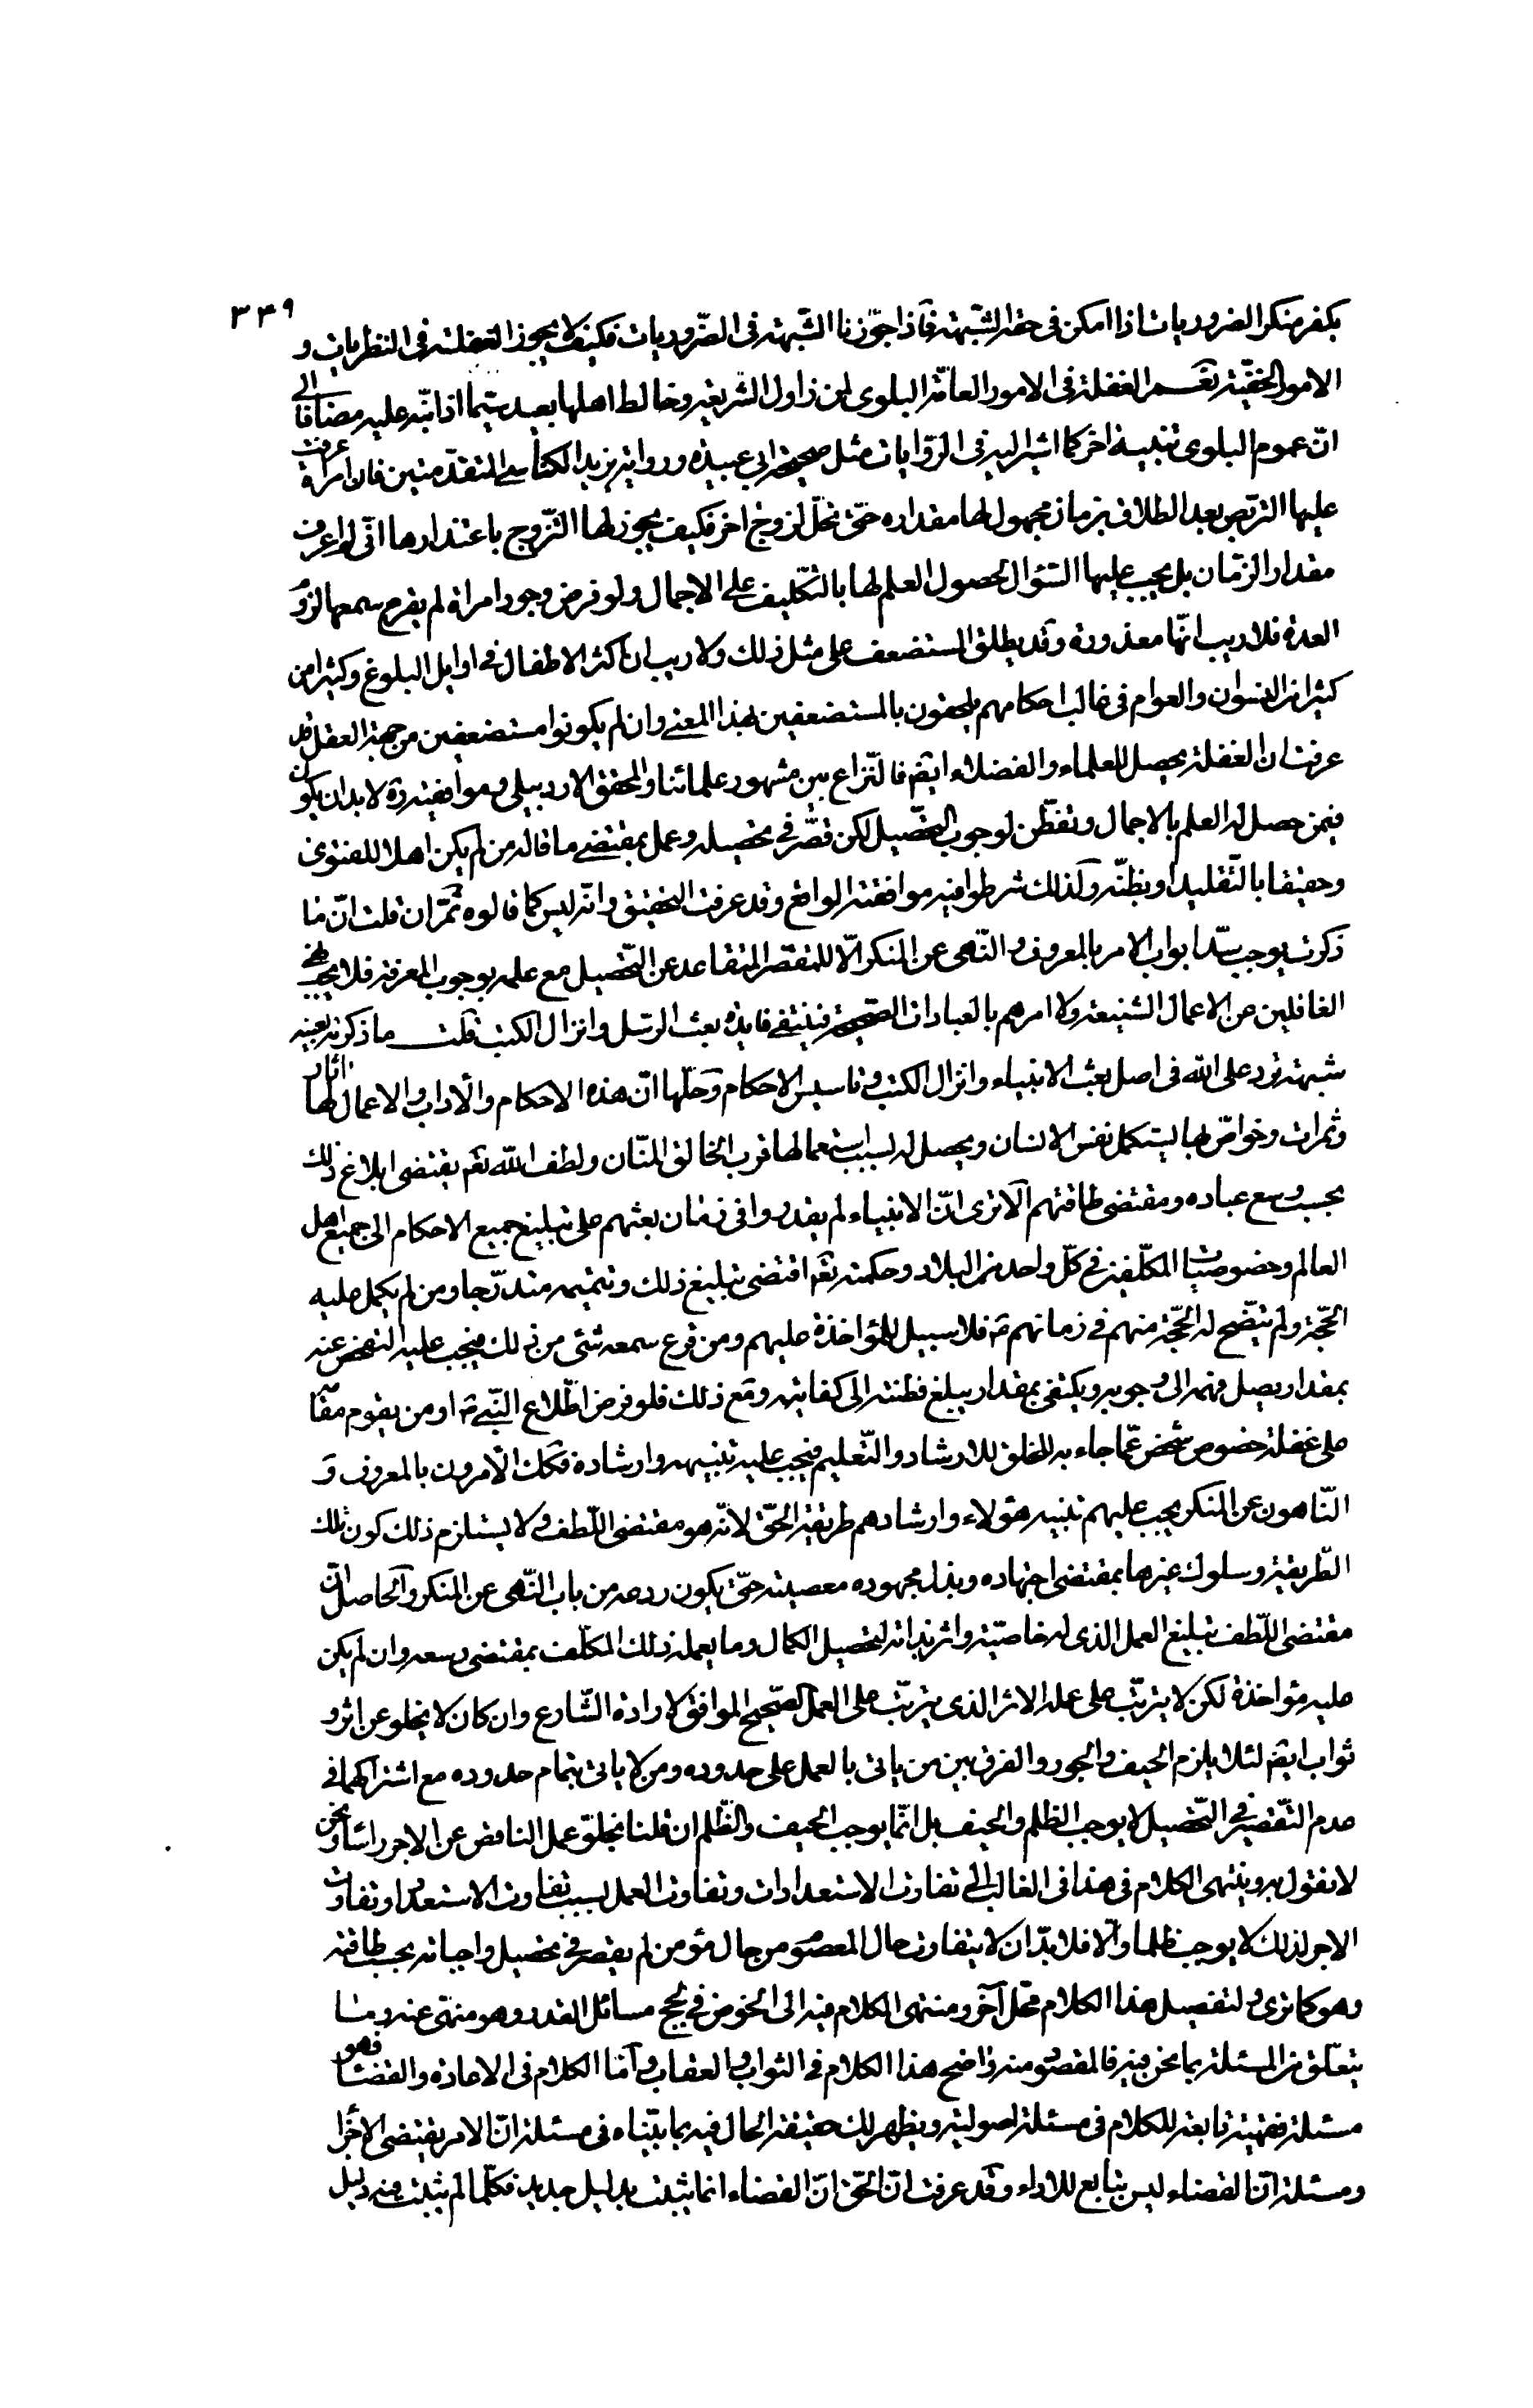 ٣٣٩
يكفر منكر الضروريات اذا امكن فى حقه الشّبهة فاذا جوّزنا الشّبهة فى الضّروريات فكيف لا يجوز الغفلة فى النظريات و
الامور الخفيّة نعم الغفلة فى الامور العامّة البلوى لمن زاول الشّريعة وخالط اهلها بعيد سيّما اذا نبّه عليه مضافا الى
انّ عموم البلوى تنبيه اخر كما اشير اليه فى الرّوايات مثل صحيحة ابى عبيدة ورواية يزيد الكناسى المتقدّمتين فان امراة عرفت
عليها التربّص بعد الطلاق بزمان مجهول لها مقداره حتّى تحلّ لزوج اخر فكيف يجوز لها التّزوج باعتذارها انّى لم اعرف
مقدار الزّمان بل يجب عليها السّؤال لحصول العلم لها بالتّكليف على الاجمال ولو فرض وجود امراة لم يقرع سمعها لزوم
العدة فلا ريب انّها معذورة وقد يطلق المستضعف على مثل ذلك ولا ريب ان اكثر الاطفال فى اوايل البلوغ وكثيرا من
كثيرا من النسوان والعوام فى غالب احكامهم يلحقون بالمستضعفين بهذا المعنى وان لم يكونوا مستضعفين من جهة العقل قد
عرفت ان الغفلة يحصل للعلماء والفضلاء ايضم فالنّزاع بين مشهور علمائنا والمحقق الاردبيلى وموافقيه ره لا بد ان يكون
فيمن حصل له العلم بالاجمال وتفطّن لوجوب التحصيل لكن قصّر فى تحصيله وعمل بمقتضى ما قاله من لم يكن اهلا للفتوى
وحقيقا بالتّقليد او بظنّه ولذلك شرطوا فيه موافقته الواقع وقد عرفت التحقيق وانّه ليس كما قالوه ثمّ ان قلت انّ ما
ذكرت يوجب سدّ ابواب الامر بالمعروف والنّهى عن المنكر الّا للمقصّر المتقاعد عن التّحصيل مع علمه بوجوب المعرفة فلا يجب نهى
الغافلين عن الاعمال الشنيعة ولا امرهم بالعبادات الصّحيحة فينتفى فايدة بعث الرّسل وانزال الكتب قلت ما ذكرته بعينه
شبهة تورد على الله فى اصل بعث الانبياء وانزال الكتب وتاسيس الاحكام وحلّها انّ هذه الاحكام والاداب والاعمال لها اثار
وثمرات وخواصّ بها يستكمل نفس الانسان ويحصل له بسبب استعمالها قرب الخالق المنّان ولطف الله تعم يقتضى ابلاغ ذلك
بحسب وسع عباده ومقتضى طاقتهم الا ترى انّ الانبياء لم يقدروا فى زمان بعثهم على تبليغ جميع الاحكام الى جميع اهل
العالم وخصوصيّات المكلّفين فى كلّ واحد من البلاد وحكمته تعم اقتضى تبليغ ذلك وتتميمه متدرّجا ومن لم يكمل عليه
الحجّة ولم يتّضح له الحجّة منهم فى زمانهم فلا سبيل للمؤاخذة عليهم ومن قرع سمعه شئ من ذلك فيجب عليه التفحّص عنه
بمقدار يصل فهمه الى وجوبه ويكتفى بمقدار يبلغ فطنته الى كفايته ومع ذلك فلو فرض اطّلاع النّبى ص او من يقوم مقامه
على غفلة خصوص شخص عمّا جاء به للخلق للارشاد والتّعليم فيجب عليه تنبيهه وارشاده فكك الآمرون بالمعروف و
النّاهون عن المنكر يجب عليهم تنبيه هؤلاء وارشادهم طريقة الحقّ لانّه هو مقتضى اللّطف ولا يستلزم ذلك كون تلك
الطّريقة وسلوك غيرها بمقتضى اجتهاده وبذل مجهوده معصيته حتّى يكون ردعه من باب النّهى عن المنكر والحاصل انّ
مقتضى اللّطف تبليغ العمل الذى له خاصيّة واثر بذاته لتحصيل الكمال وما يعمله ذلك المكلّف بمقتضى وسعه وان لم يكن
عليه مؤاخذة لكن لا يترتّب على عمله الاثر الذى يترتّب على العمل الصّحيح الموافق لارادة الشّارع وان كان لا يخلو عن اثر و
ثواب ايضم لئلا يلزم الحيف والجور والفرق بين من ياتى بالعمل على حدوده ومن لا ياتى بتمام حدوده مع اشتراكهما فى
عدم التّقصير فى التّحصيل لا يوجب الظلم والحيف بل انّما يوجب الحيف والظّلم ان قلنا بخلوّ عمل الناقص عن الاجر راسا ونحن
لا نقول به وينتهى الكلام فى هذا فى الغالب الى تفاوت الاستعدادات وتفاوت العمل بسبب تفاوت الاستعداد وتفاوت
الاجر لذلك لا يوجب ظلما والّا فلا بدّ ان لا يتفاوت حال المعصوم من حال مؤمن لم يقصر فى تحصيل واجباته بحسب طاقته
وهو كما ترى ولتفصيل هذا الكلام محلّ آخر ومنتهى الكلام فيه الى الخوض فى لجج مسائل القدر وهو منهى عنه وما
يتعلّق من المسئلة بما نحن فيه فالمقصود منه واضح هذا الكلام فى الثواب والعقاب وامّا الكلام فى الاعادة والقضاء فهو
مسئلة فقهيّة تابعة للكلام فى مسئلة اصوليّة ويظهر لك حقيقة الحال فيه بما بيّناه فى مسئلة انّ الامر يقتضى الاجزاء
ومسئلة انّ القضاء ليس بتابع للاداء وقد عرفت انّ الحقّ انّ القضاء انما يثبت بدليل جديد فكلّما لم يثبت فيه دليل